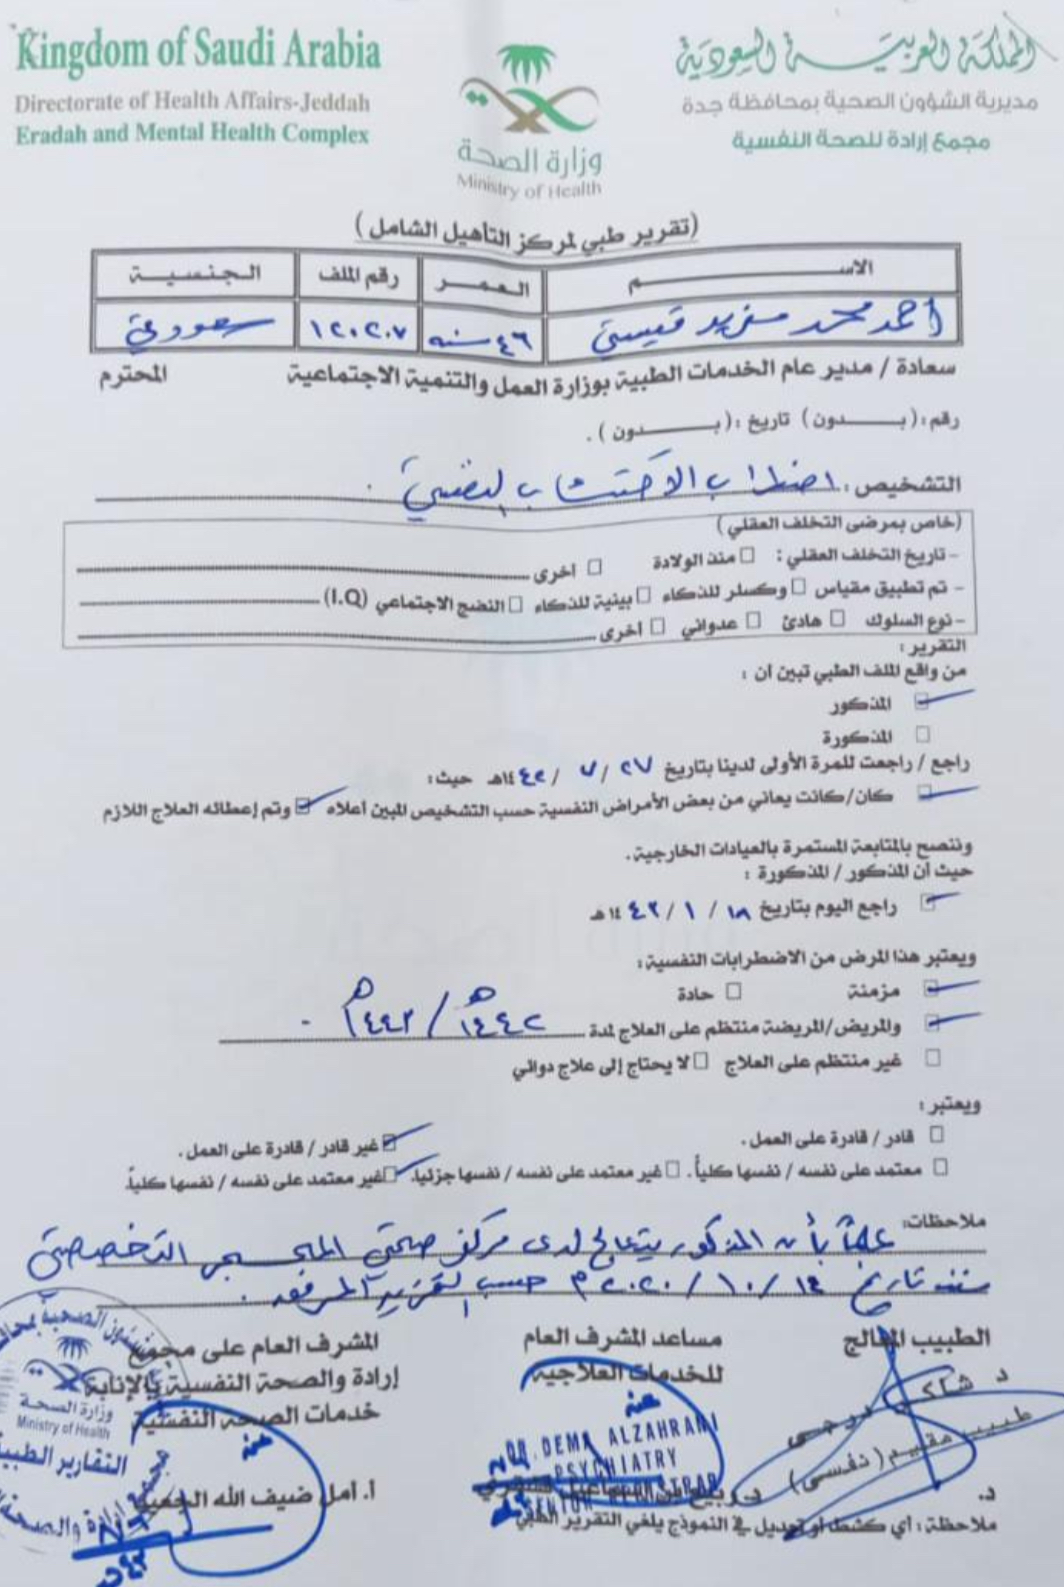 Kingdom of Saudi Arabia
Directorate of Health Affairs-Jeddah
Eradah and Mental Health Complex
وزارة الصحة
Ministry of Health
المملكة العربية السعودية
مديرية الشؤون الصحية بمحافظة جدة
مجمع إرادة للصحة النفسية
(تقرير طبي لمركز التأهيل الشامل)
الاســـم العمـــر رقم الملف الجنسيـــة
أحمد محمد قيسي ٤٦ سنه ١٢٠٢٠٧ سعودي
سعادة / مدير عام الخدمات الطبية بوزارة العمل والتنمية الاجتماعية المحترم
رقم : (بـــدون) تاريخ : (بـــدون) .
التشخيص : اضطراب الاكتئاب النفسي .
(خاص بمرضى التخلف العقلي)
- تاريخ التخلف العقلي : □ منذ الولادة □ اخرى
- تم تطبيق مقياس □ وكسلر للذكاء □ بينية للذكاء □ النضج الاجتماعي (I.Q)
- نوع السلوك □ هادئ □ عدواني □ اخرى
التقرير :
من واقع الملف الطبي تبين ان :
☑ المذكور
□ المذكورة
راجع / راجعت للمرة الأولى لدينا بتاريخ ٢٧ / ٧ / ١٤٤٢هـ حيث :
☑ كان/كانت يعاني من بعض الأمراض النفسية حسب التشخيص المبين اعلاه ☑ وتم إعطائه العلاج اللازم
وننصح بالمتابعة المستمرة بالعيادات الخارجية .
حيث أن المذكور / المذكورة :
☑ راجع اليوم بتاريخ ١٨ / ١ / ١٤٤٣ هـ
ويعتبر هذا المرض من الاضطرابات النفسية :
☑ مزمنة □ حادة
☑ والمريض/المريضة منتظم على العلاج لمدة ١٤٤٢هـ / ١٤٤٣هـ .
□ غير منتظم على العلاج □ لا يحتاج إلى علاج دوائي
ويعتبر :
□ قادر / قادرة على العمل . ☑ غير قادر / قادرة على العمل .
□ معتمد على نفسه / نفسها كلياً . □ غير معتمد على نفسه / نفسها جزئيا . ☑ غير معتمد على نفسه / نفسها كلياً .
ملاحظات: علماً بأن المذكور يتعالج لدى مركز صحي التخصصي
منذ تاريخ ١٤ / ١٠ / ٢٠٢٠ م حسب التقرير المرفق .
الطبيب المعالج
د شاكر
طبيب مقيم (نفسي)
د.
مساعد المشرف العام
للخدمات العلاجية
عنه
DR. DEMA ALZAHRANI
PSYCHIATRY
SENIOR REGISTRAR
المشرف العام على مجمع
إرادة والصحة النفسية بالإنابة
خدمات الصحة النفسية
عنه
أ. أمل ضيف الله
وزارة الصحة
Ministry of Health
التقارير الطبية
ملاحظة : أي كشط أو تعديل في النموذج يلغي التقرير الطبي